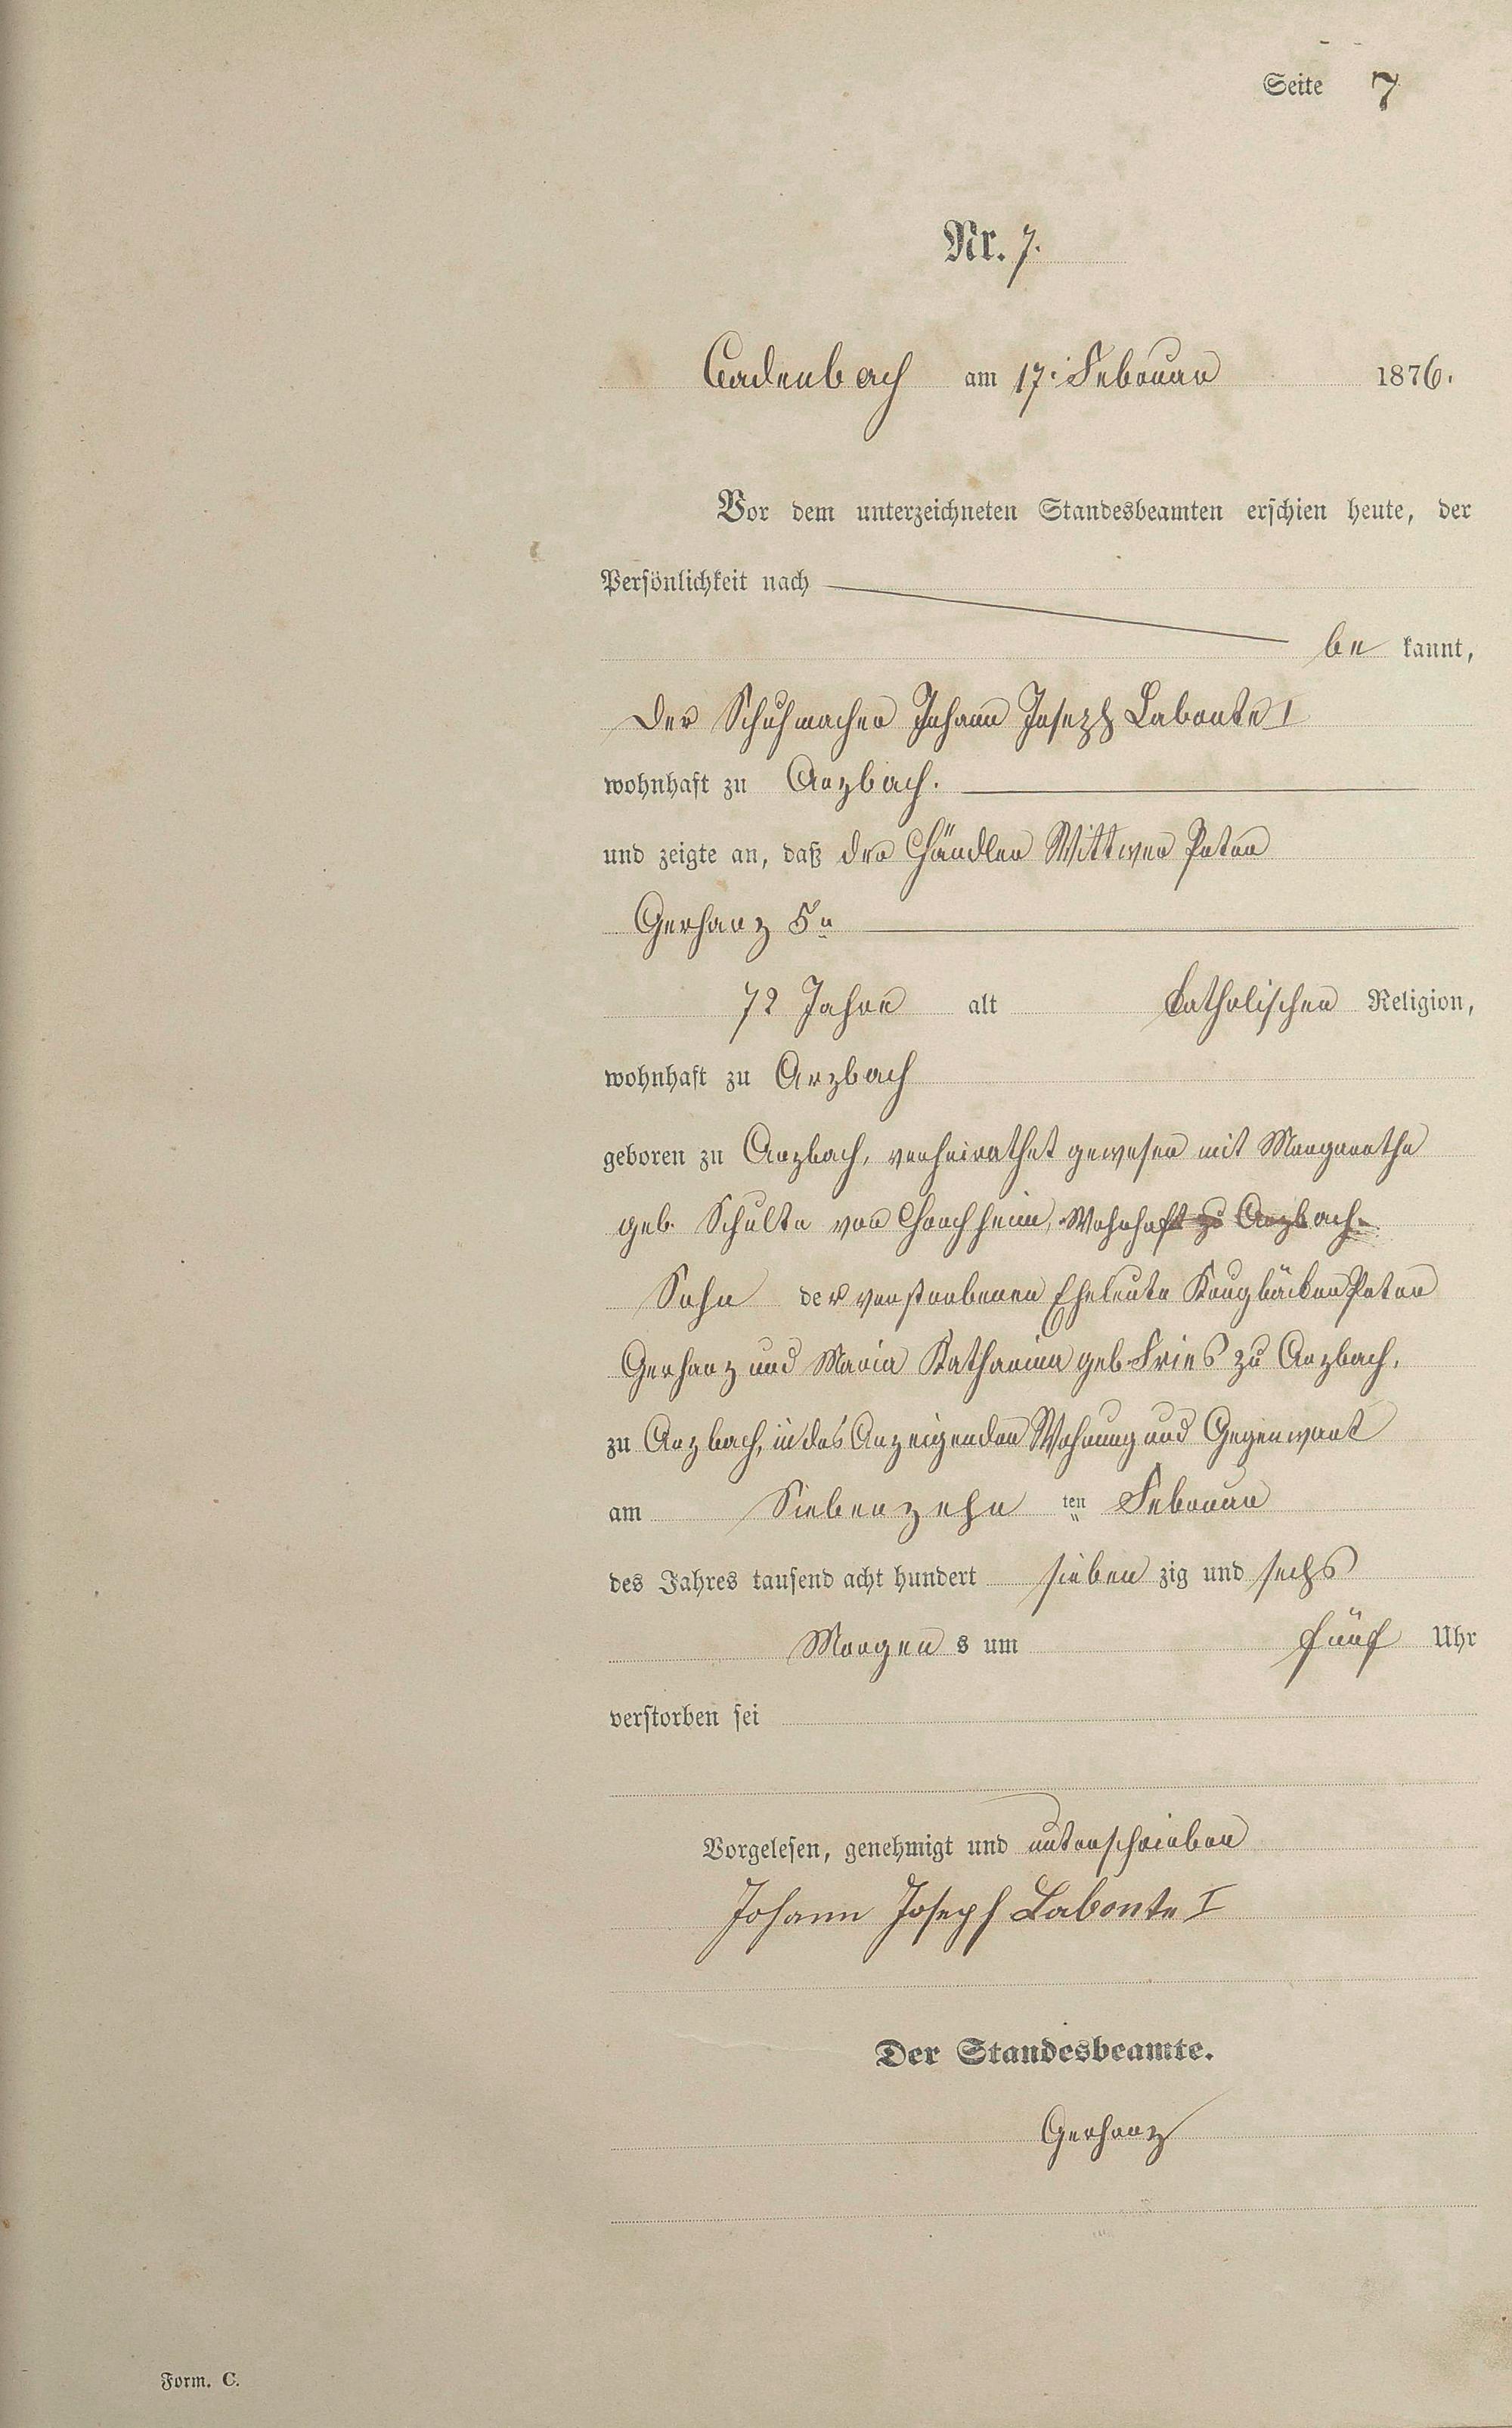 Seite 7
Nr. 7.
Cadenbach am 17. Februar 1876.
Vor dem unterzeichneten Standesbeamten erschien heute, der
Persönlichkeit nach
be kannt,
Der Schuhmacher Johann Joseph Labonte I
wohnhaft zu Arzbach.
und zeigte an, daß der Händler Wittwer Peter
Gerharz 5r
72 Jahre alt katholischer Religion,
wohnhaft zu Arzbach
geboren zu Arzbach, verheirathet gewesen mit Margarethe
geb. Schulte von Horchheim, Wohnhaft zu Arzbach.
Sohn der verstorbenen Eheleute Krugbäcker Peter
Gerharz und Maria Katharina geb. Fries zu Arzbach,
zu Arzbach, in des Anzeigenden Wohnung und Gegenwart
am Siebenzehn ten Februar
des Jahres tausend acht hundert sieben zig und sechs
Morgen s um fünf Uhr
verstorben sei
Vorgelesen, genehmigt und unterschrieben
Johann Joseph Labonte I
Der Standesbeamte.
Gerharz
Form. C.